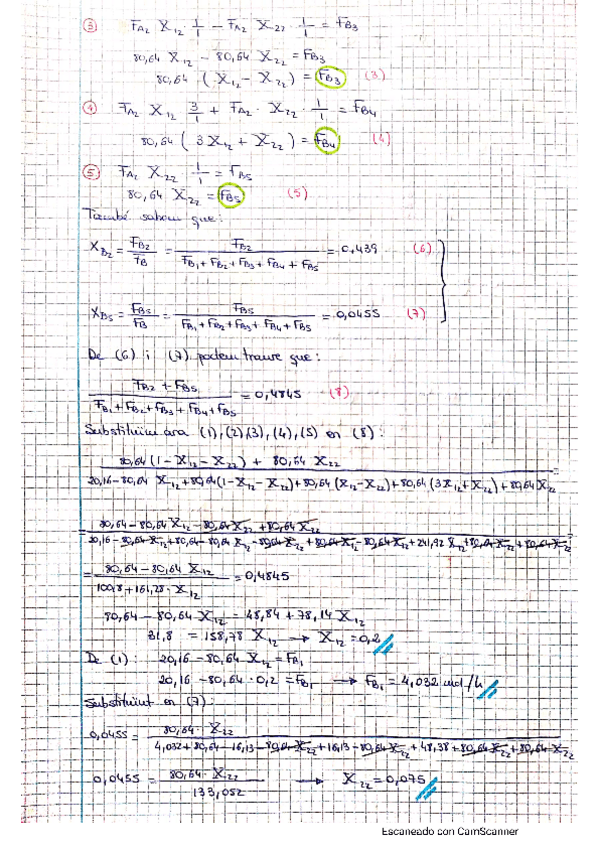 ③ F_A2 X_12 · 1/1 − F_A2 X_22 · 1/1 = F_B3
80,64 X_12 − 80,64 X_22 = F_B3
80,64 (X_12 − X_22) = F_B3 (3)
④ F_A2 X_12 3/1 + F_A2 · X_22 · 1/1 = F_B4
80,64 (3X_12 + X_22) = F_B4 (4)
⑤ F_A2 X_22 1/1 = F_B5
80,64 X_22 = F_B5 (5)
També sabem que:
X_B2 = F_B2/F_B = F_B2/(F_B1 + F_B2 + F_B3 + F_B4 + F_B5) = 0,439 (6)
X_B5 = F_B5/F_B = F_B5/(F_B1 + F_B2 + F_B3 + F_B4 + F_B5) = 0,0455 (7)
De (6) i (7) podem treure que:
(F_B2 + F_B5)/(F_B1 + F_B2 + F_B3 + F_B4 + F_B5) = 0,4845 (8)
Substituim ara (1),(2),(3),(4),(5) en (8):
(80,64 (1 − X_12 − X_22) + 80,64 X_22)/(20,16 − 80,64 X_12 + 80,64 (1 − X_12 − X_22) + 80,64 (X_12 − X_22) + 80,64 (3X_12 + X_22) + 80,64 X_22) =
= (80,64 − 80,64 X_12 − 80,64 X_22 + 80,64 X_22)/(20,16 − 80,64 X_12 + 80,64 − 80,64 X_12 − 80,64 X_22 + 80,64 X_12 − 80,64 X_22 + 241,92 X_12 + 80,64 X_22 + 80,64 X_22) =
= (80,64 − 80,64 X_12)/(100,8 + 161,28 · X_12) = 0,4845
80,64 − 80,64 X_12 = 48,84 + 78,14 X_12
31,8 = 158,78 X_12 → X_12 = 0,2
De (1): 20,16 − 80,64 X_12 = F_B1
20,16 − 80,64 · 0,2 = F_B1 → F_B1 = 4,032 mol/h
Substituint en (7):
0,0455 = (80,64 · X_22)/(4,032 + 80,64 − 16,13 − 80,64 X_22 + 16,13 − 80,64 X_22 + 48,38 + 80,64 X_22 + 80,64 X_22)
0,0455 = (80,64 · X_22)/133,052 → X_22 = 0,075
Escaneado con CamScanner